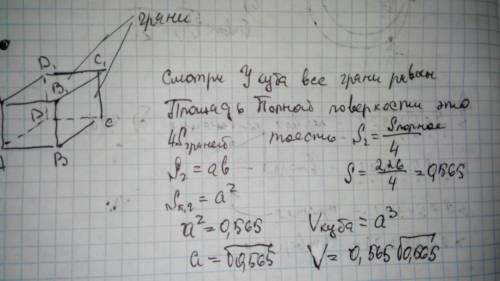 грани
D₁ C₁
B₁
D C
A B
Смотри У куба все грани равны
Площадь Полной поверхности это
4S граней тоесть S₂ = Sполное/4
S₂ = ab S = 2,26/4 = 0,565
Sк.г = a²
a² = 0,565 Vкуба = a³
a = √0,565 V = 0,565√0,665